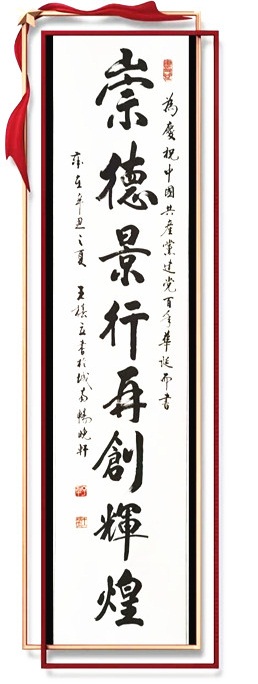 為慶祝中國共產黨建党百年華诞而書
崇德景行再創輝煌
歲在辛丑之夏 王 書於城南暢晚軒